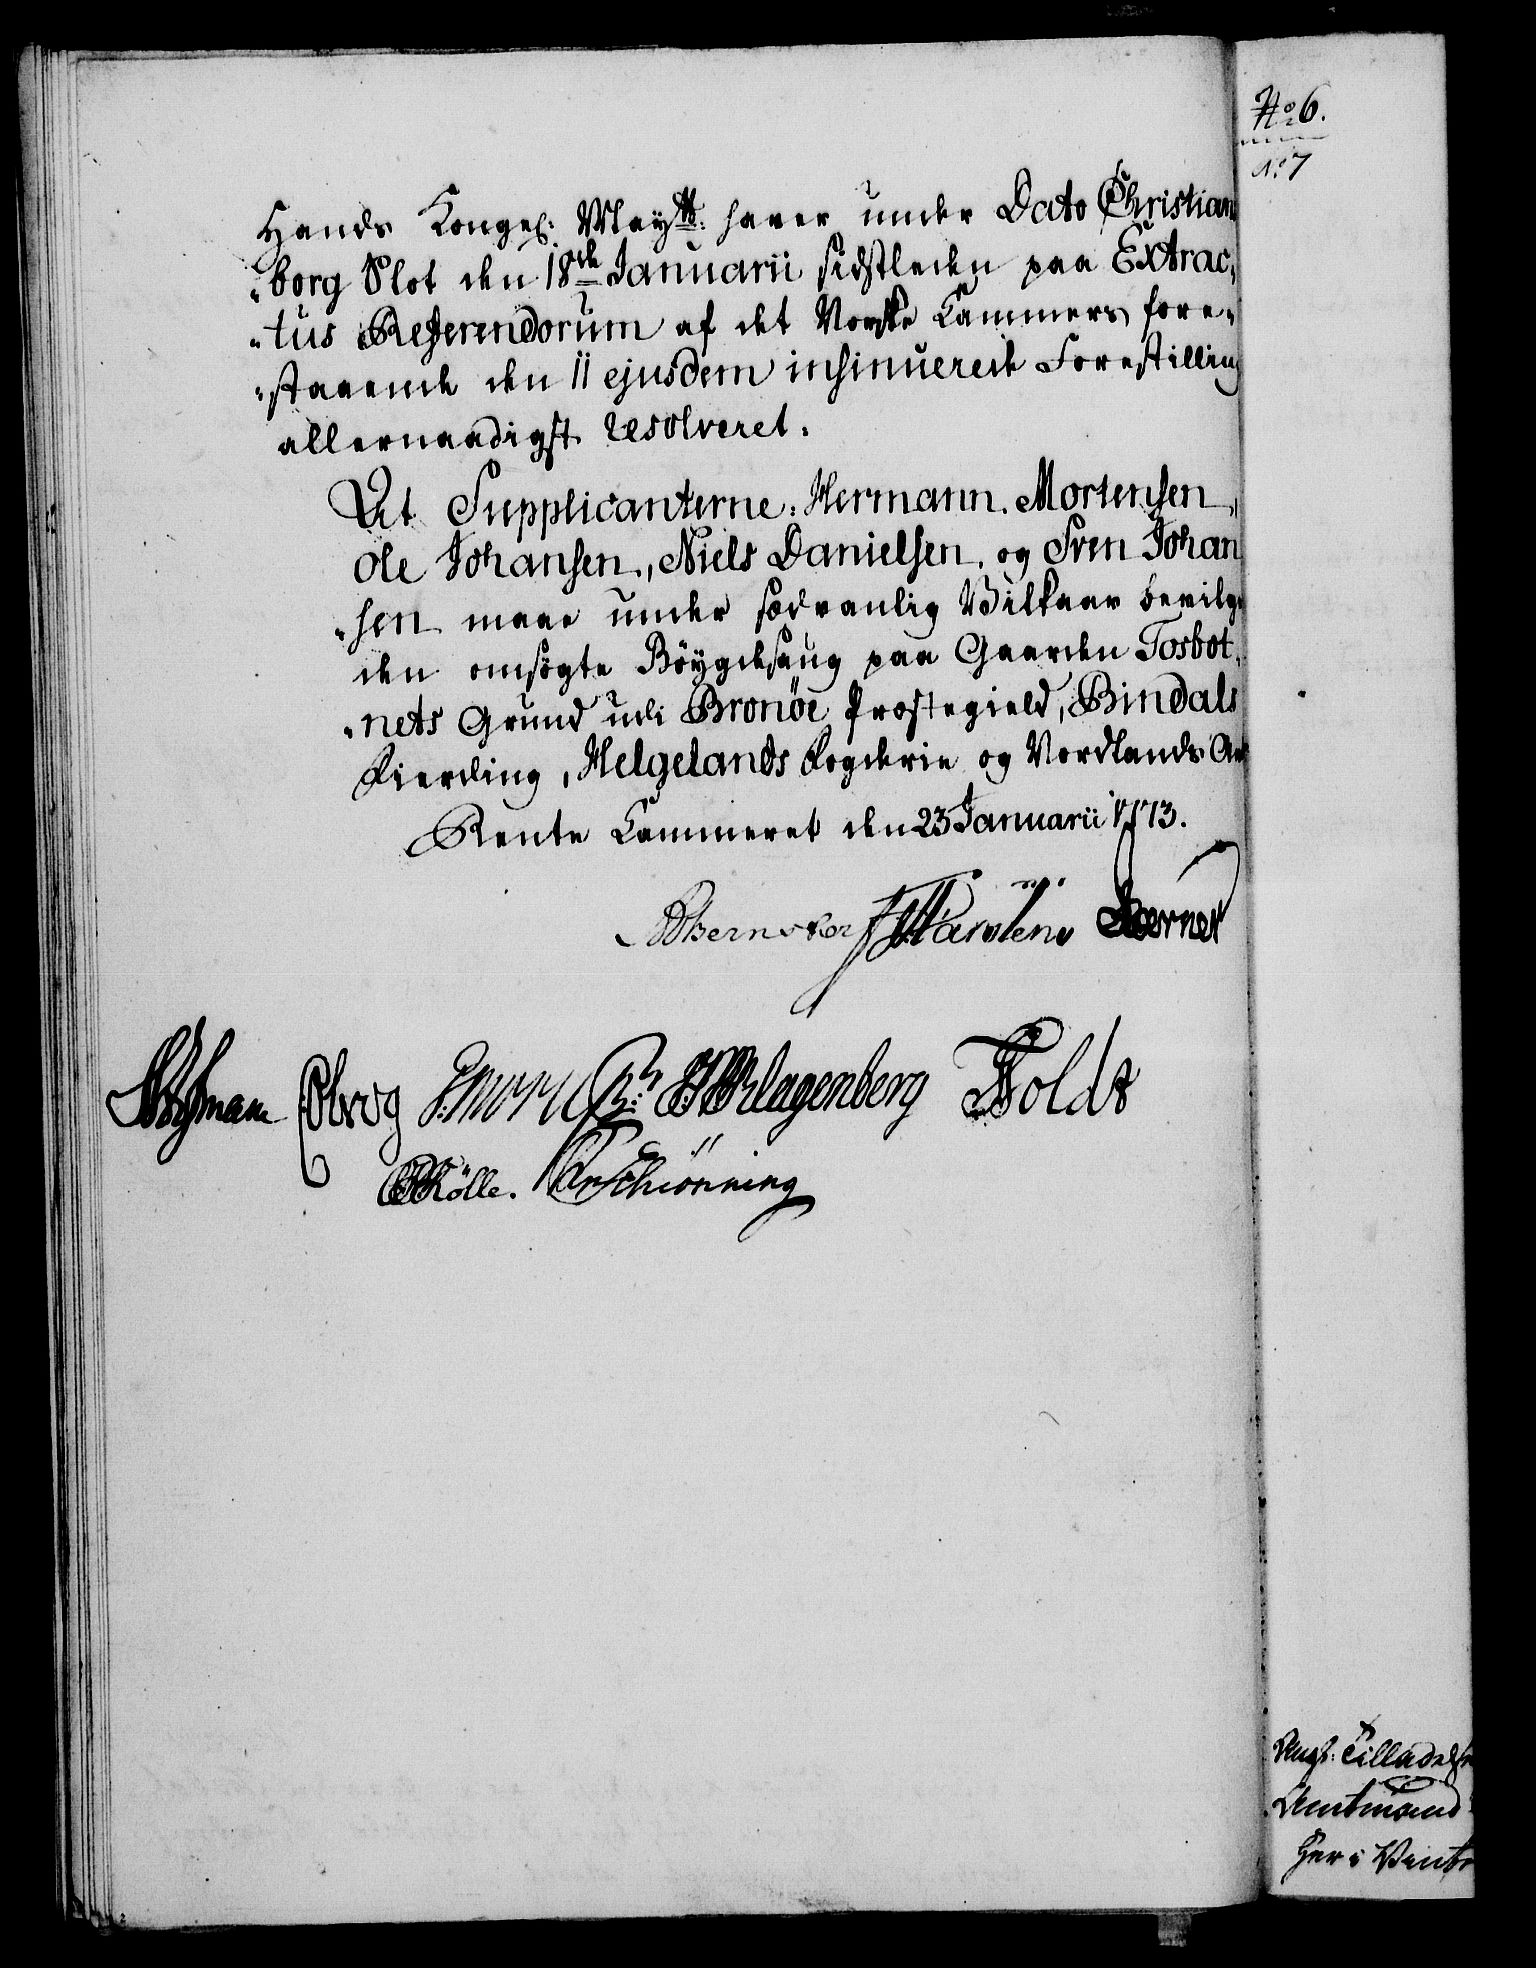 Hands Kongel: Maytt: haver under Dato Christians
"borg Slot den 18de Januarii sidstleden paa Extrac„
"tus Referendorum af det Norske Kammers fore„
"staaende den 11 ejusdem insinuerede Forestilling
allernaadigst resolveret.
At Supplicanterne, Hermann Mortensen,
Ole Johansen, Niels Danielsen, og Sven Johan
"sen maae under sædvanlig Vilkaar bevilges
den omsøgte Bøygdesaug paa Gaarden Tosbot„
"nets Grund udi Bronöe Præstegield, Bindals
Fierding, Helgelands Fogderie og Nordlands Amt
Rente Kammeret den 23 Januarii 1773.
Bærner
Oberg Klagenberg Holdt
Kölle. Schiønning
No 6.
No 7
Angl: Tilladelse
Amtmand
her i Vinter